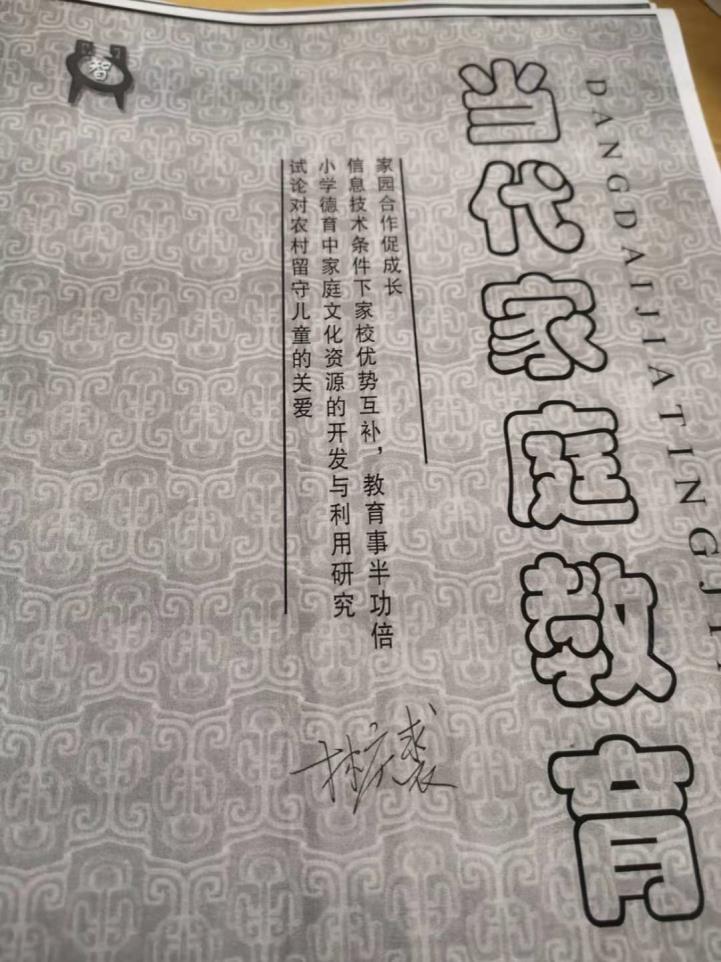 当代家庭教育
DANGDAIJIATINGJI
家园合作促成长
信息技术条件下家校优势互补，教育事半功倍
小学德育中家庭文化资源的开发与利用研究
试论对农村留守儿童的关爱
智